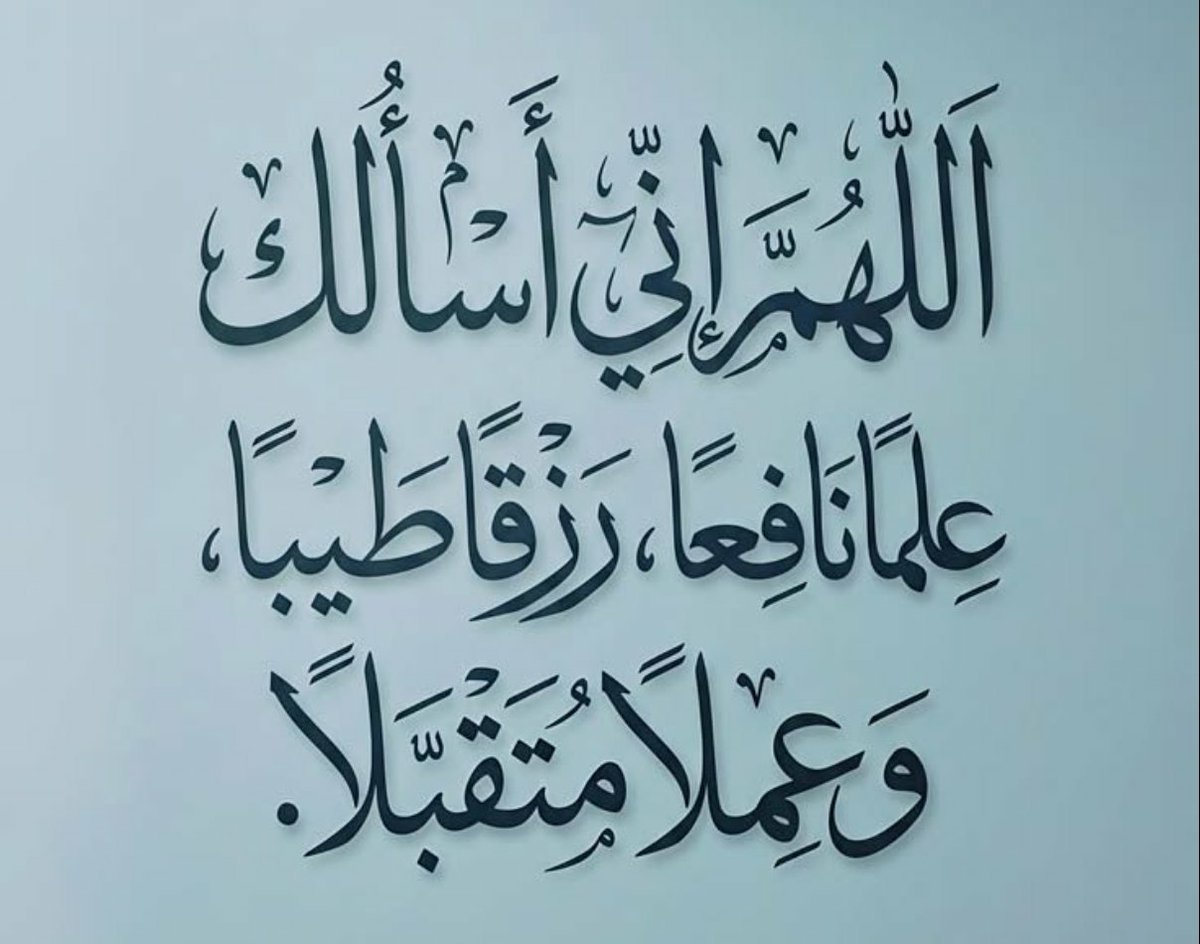 اَللّٰهُمَّ إِنِّي أَسْأَلُكَ
عِلمًا نَافِعًا، رَزْقًا طَيْبًا،
وَعمِلاً مُتَقْبَّلاً.